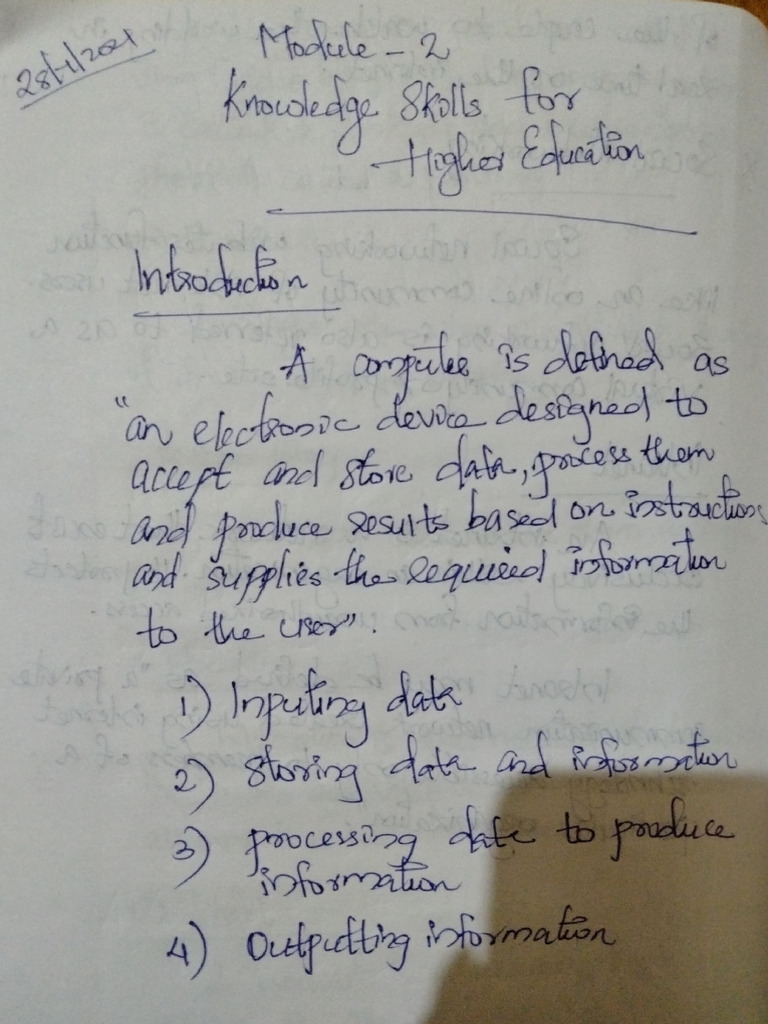 28/1/2021
Module - 2
Knowledge Skills for
Higher Education
Introduction
A computer is defined as
"an electronic device designed to
accept and store data, process them
and produce results based on instructions
and supplies the required information
to the user".
1) Inputing data
2) Storing data and information
3) processing data to produce
information
4) Outputting information